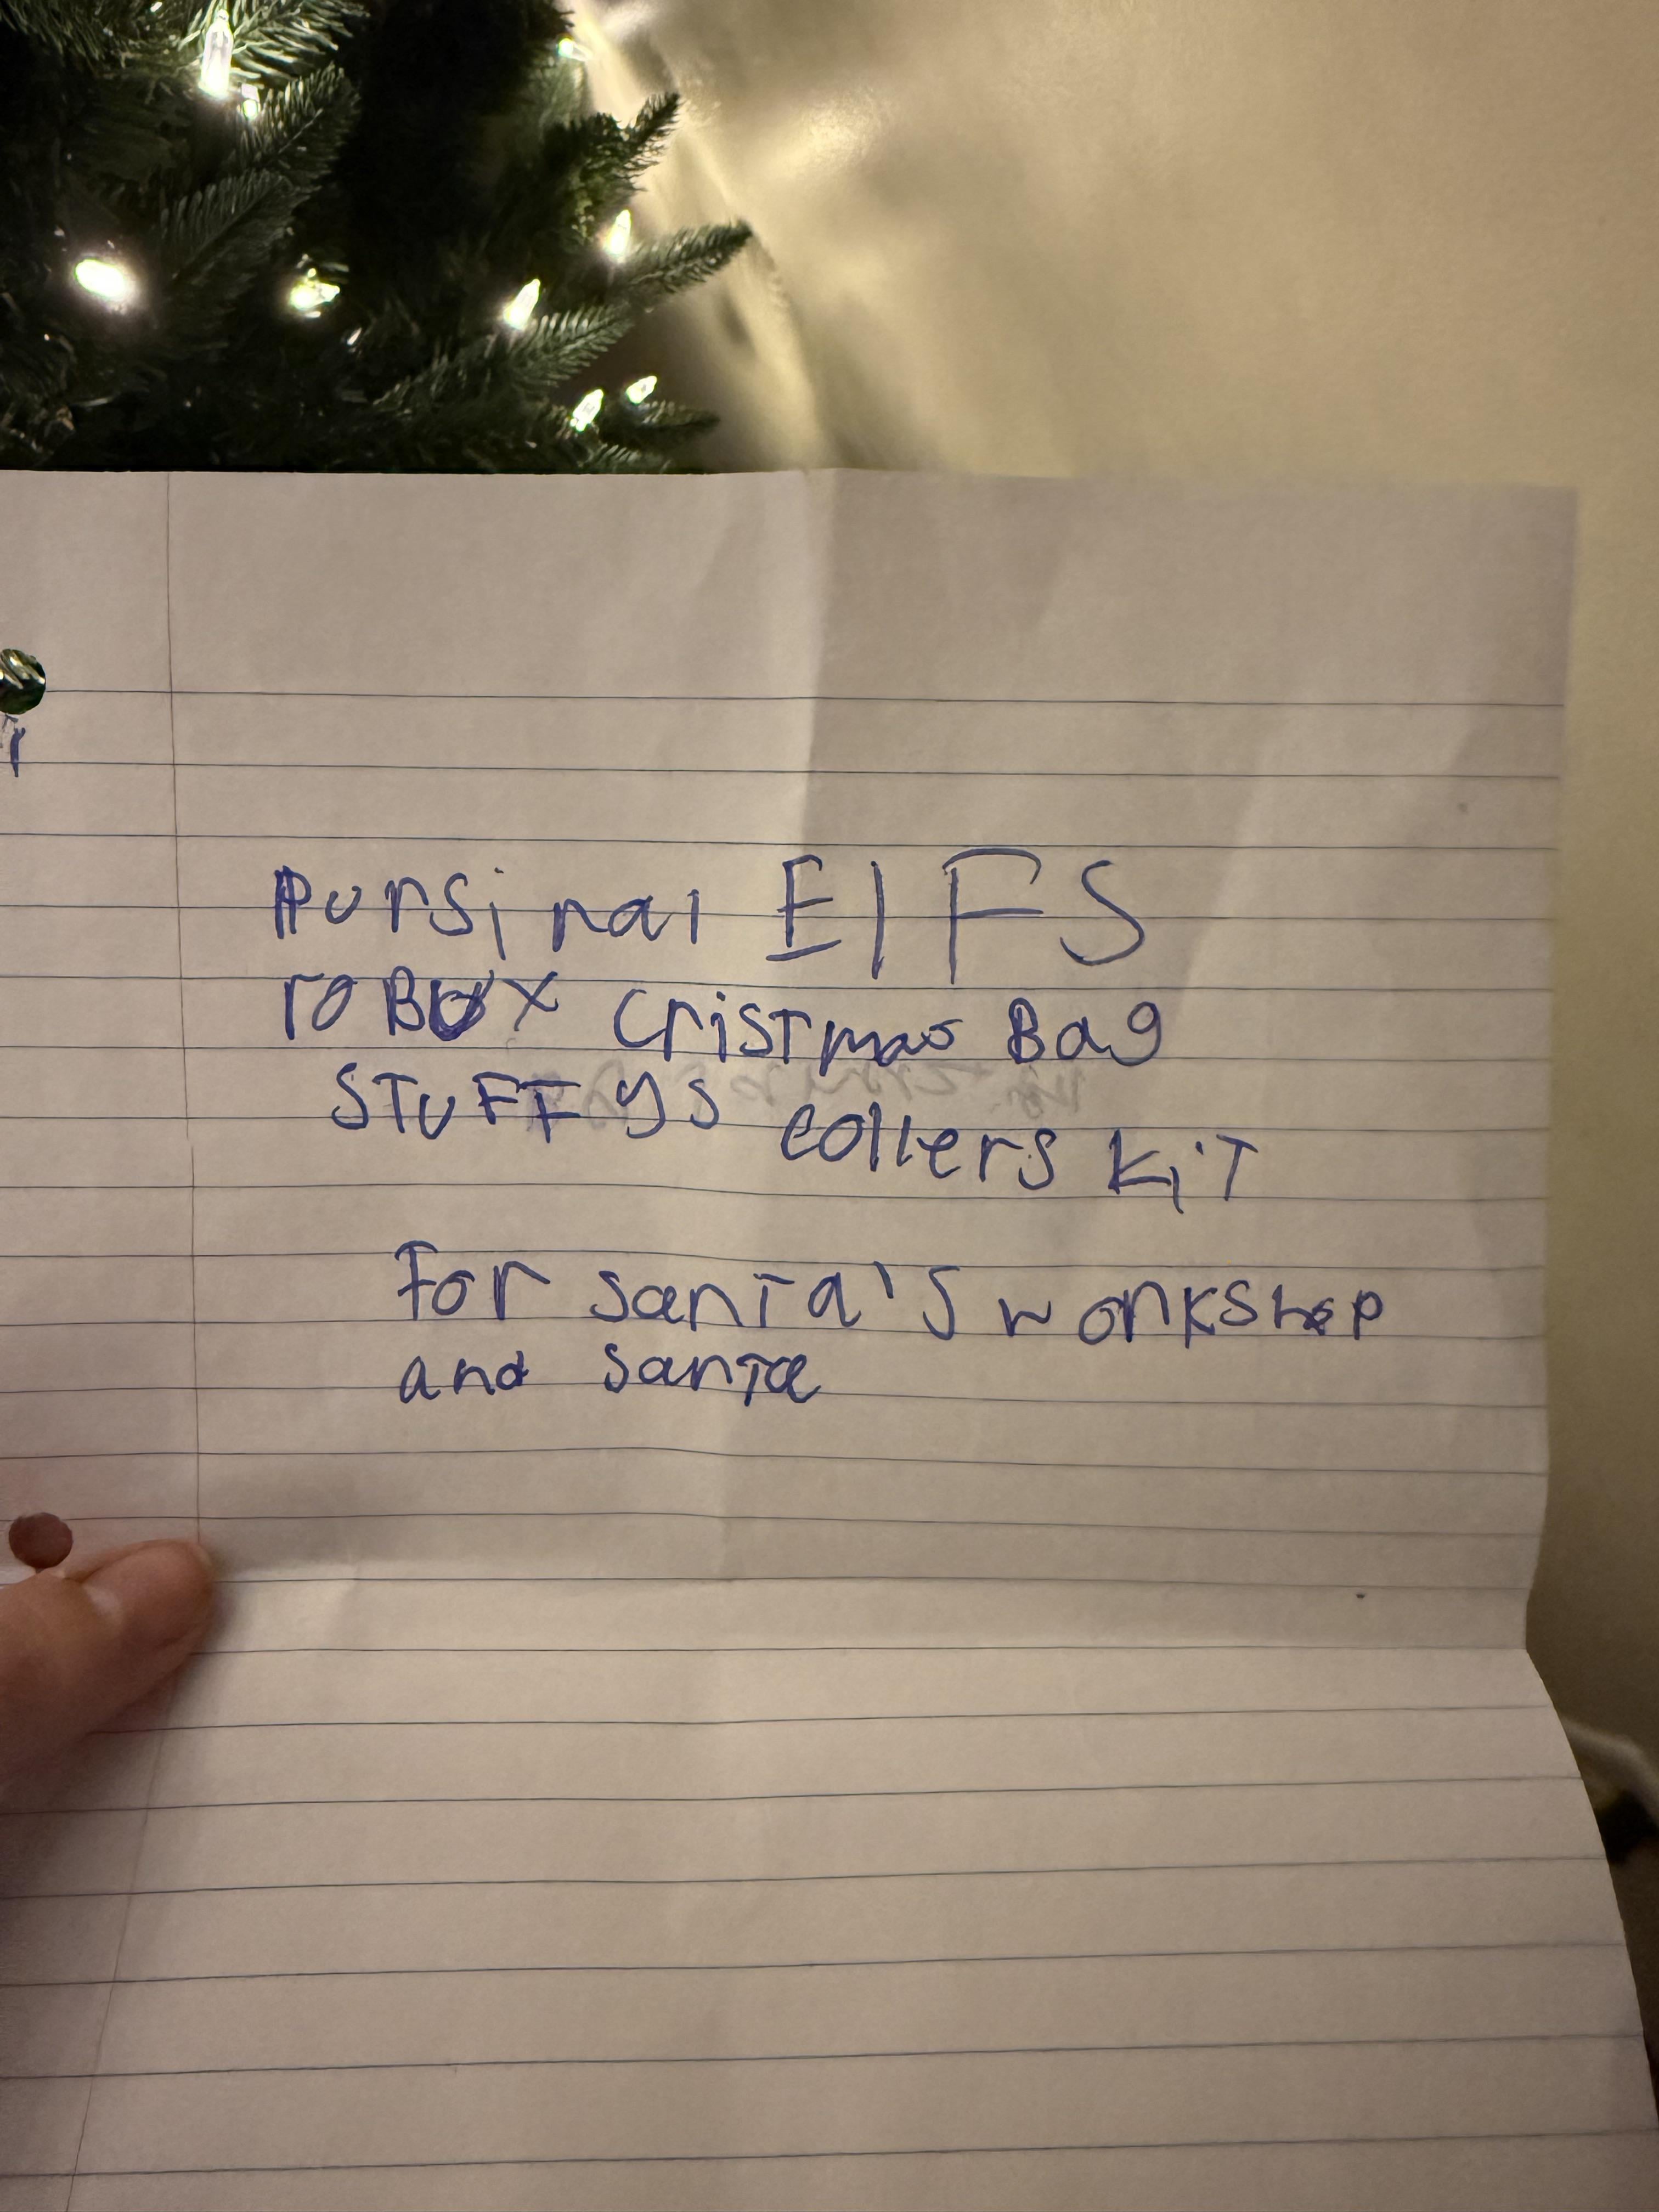 Pursinal ElFS
roBUX Cristmas Bag
STUFFYS collers KiT
For santa's workshop
and santa